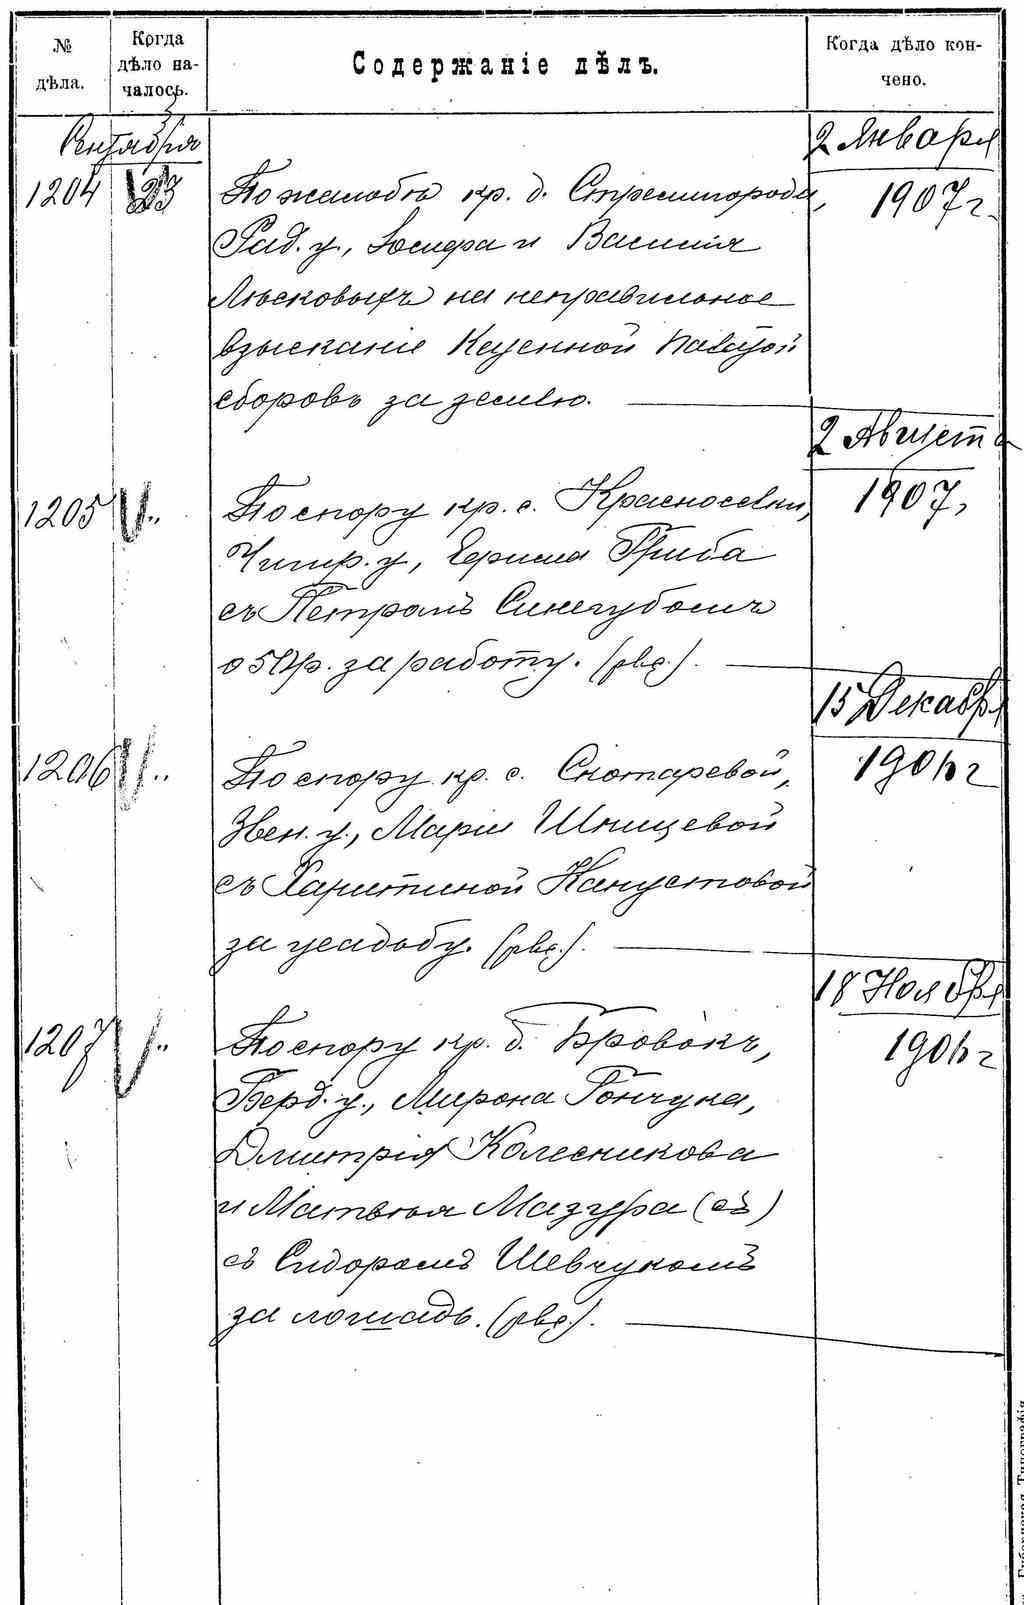 № дѣла.
Когда дѣло на-
чалось.
Содержаніе дѣлъ.
Когда дѣло кон-
чено.
Сентября
2 Января
1204 23 По жалобѣ кр. д. Стремигорода, 1907 г.
Рад. у., Іосифа и Василія
на неправильное
взысканіе Казенной Палатой
сборовъ за землю.
2 Августа
1205 " По спору кр. с. Красноселки, 1907,
Чигир. у., Ефима Гриба
съ Петромъ Синегубомъ
о 50 р. за работу. (рвз.).
15 Декабр
1206 " По спору кр. с. Скотаревой, 1906 г
Звен. у., Маріи Шпицевой
съ Харитиной Капустовой
за усадьбу. (рвз.).
18 Ноября
1207 " По спору кр. д. Бровокъ, 1906 г
Берд. у., Мирона Гончука,
Дмитрія Колесникова
и Матвѣя Мазура (съ)
съ Сидоромъ Шевчукомъ
за лошадь. (рвз.).
Губернская Типографія